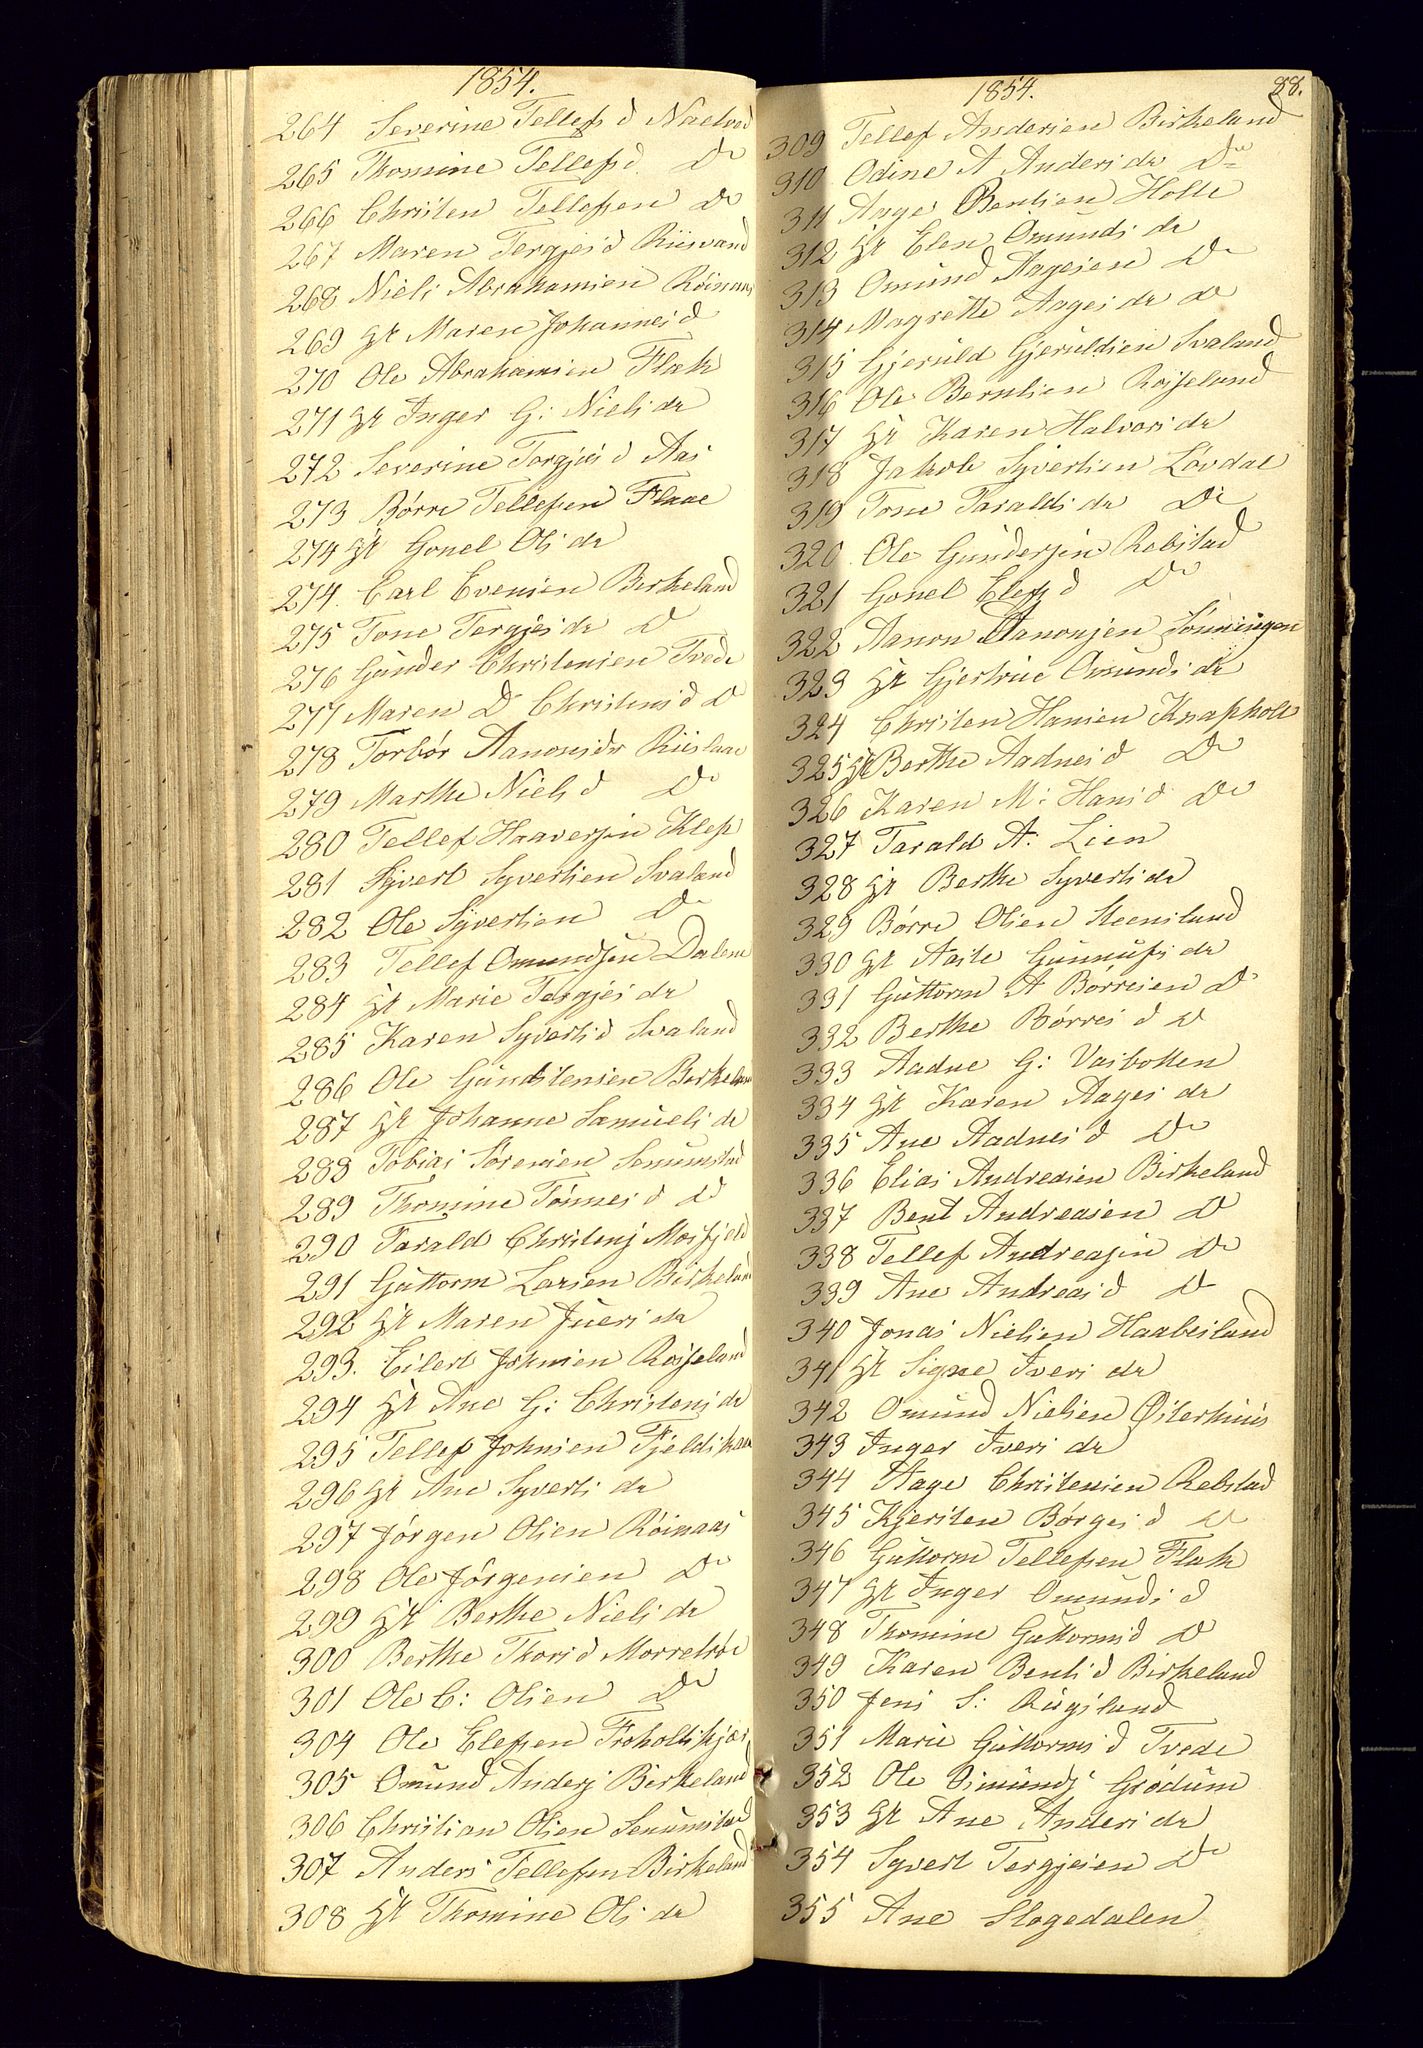 1854.
264 Severine Tellefs d Naelved
265 Thomine Tellefs d. Do
266 Christen Tellefsen Do
267 Maren Tergjes d Riisvand
268 Niels Abrahamsen Röinaas
269 Hr Maren Johannes d
270 Ole Abrahamsen Flak
271 Hr Inger G: Niels dr
272 Severine Torgjus d Aas
273 Börre Tellefsen Flaae
274 Hr Gonel Ols dr
274. Carl Evensen Berkeland
275 Tone Tergjes dr D
276 Gunder Christensen Tvede
277 Maren D Christens d D
278 Torbör Aanons dr Riislaae
279 Marthe Niels d Do
280 Tellef Haaversen Klep
281 Syvert Syvertsen Svaland
282 Ole Syvertsen Do
283 Tellef Omundsen Dalene
284 Hr Marie Tergjes dr
285 Karen Syverts d Svaland
286 Ole Gundstensen Berkeland
287 Hr Johanne Samuels dr
288 Tobias Sörensen Senumstad
289 Thomine Tönnes d D
290 Tarald Christens Mosfjeld
291 Guttorm Larsen Birkeland
292 Hr Maren Juers dr
293. Eilert Johnsen Roiseland
294 Hr Ane G: Christens dr
295 Tellef Johnsen Fjeldskaar
296 Hr Ane Syverts dr
297 Jörgen Olsen Röinaas
298 Ole Jörgensen Do
299 Hr Berthe Niels dr
300 Berthe Thors d Morretröe
301 Ole C: Olsen Do
304 Ole Elefsen Froholtskjær
305 Omund Anders Birkeland
306 Christian Olsen Senumstad
307 Anders Tellefsen Birkeland
308 Hr Thomine Ols dr
1854. 88.
309 Tellef Andersen Birkeland
310 Odine A Anders dr Do
311 Aage Bentsen Holte
312 Hr Elen Omunds dr
313 Omund Aagesen Do
314 Magrette Aages dr do
315 Gjeruld Gjeruldsen Svaland
316 Ole Berntsen Roiseland
317 Hr Karen Halvors dr
318 Jakob Syvertsen Lövdal
319 Tone Taralds dr Do
320. Ole Gundersen Rebstad
321 Gonel Elefs d Do
322 Aanon Aanonsen Sönningen
323 Hr Gjertrue Omunds dr
324 Christen Hansen Knapholt
325 Hr Berthe Aadnes d Do
326 Karen M: Hans d Do
327 Tarald A: Lien
328 Hr Berthe Syverts dr
329 Börre Olsen Steensland
330 Hr Aaste Gunnufs dr
331 Guttorm A Börresen D
332 Berthe Börres d D
333 Aadne G: Vasbotten
334 Hr Karen Aages dr
335 Ane Aadnes d Do
336 Elias Andreasen Birkeland
337 Bent Andreasen D
338 Tellef Andreasen Do
339 Ane Andreas d D
340 Jonas Nielsen Haabesland
341 Hr Signe Ivers dr
342 Omund Nielsen Østerhuus
343 Inger Ivers dr
344 Aage Christensen Rebstad
345 Kjersten Börges d D
346 Guttorm Tellefsen Flak
347 Hr Inger Omunds d
348 Thomine Guttorms d D
349 Karen Bents d Birkeland
350 Jens S: Rugsland
351 Marie Guttorms d Tvede
352 Ole Simunds Grödum
353 Hr Ane Anders dr
354 Syvert Tergjesen Do
355 Ane Slogedalen